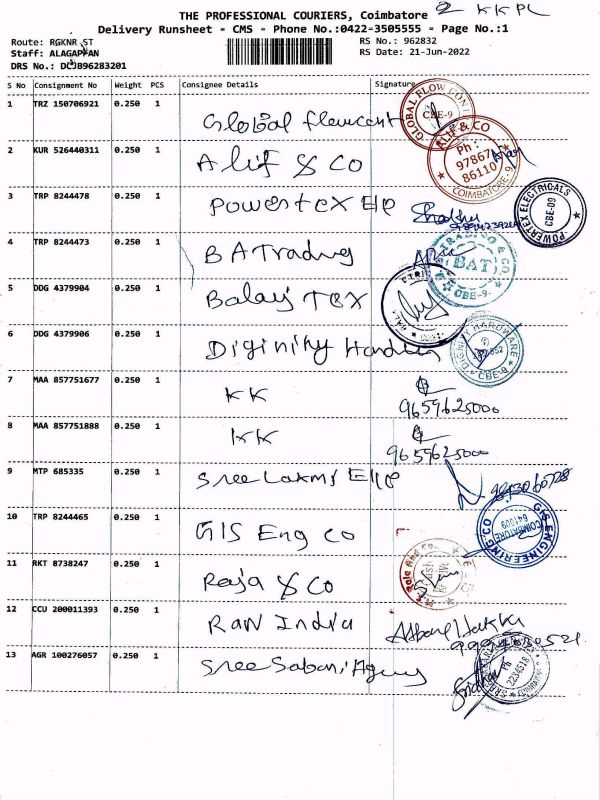 THE PROFESSIONAL COURIERS, Coimbatore 2 KKPL
Delivery Runsheet - CMS - Phone No.:0422-3505555 - Page No.:1
Route: RGKNR ST RS No.: 962832
Staff: ALAGAPPAN RS Date: 21-Jun-2022
DRS No.: DCJB96283201
S No Consignment No Weight PCS Consignee Details Signature
1 TRZ 150706921 0.250 1 Global Flowcont
GLOBAL FLOW CONT CBE-9
2 KUR 526440311 0.250 1 Alif & Co
ALIF & CO Ph : 97867 86110 COIMBATORE-9
3 TRP 8244478 0.250 1 Powertex Elp
POWERTEX ELECTRICALS CBE-09
4 TRP 8244473 0.250 1 BA Trading
TRADING & CO (BAT) CBE-9.
5 DDG 4379904 0.250 1 Balaji Tex
6 DDG 4379906 0.250 1 Diginity Hardwe
DIGNITY HARDWARE CBE-9
7 MAA 857751677 0.250 1 KK 9659625000
8 MAA 857751888 0.250 1 KK 9659625000
9 MTP 685335 0.250 1 Sree Laxmi Elp
10 TRP 8244465 0.250 1 GIS Eng Co
GIS ENGINEERING CO COIMBATORE 641009
11 RKT 8738247 0.250 1 Raja & Co
Raja And Co.
12 CCU 200011393 0.250 1 Ran India
13 AGR 100276057 0.250 1 Sree Sabari Agency
Ph 2234518
Sridhar